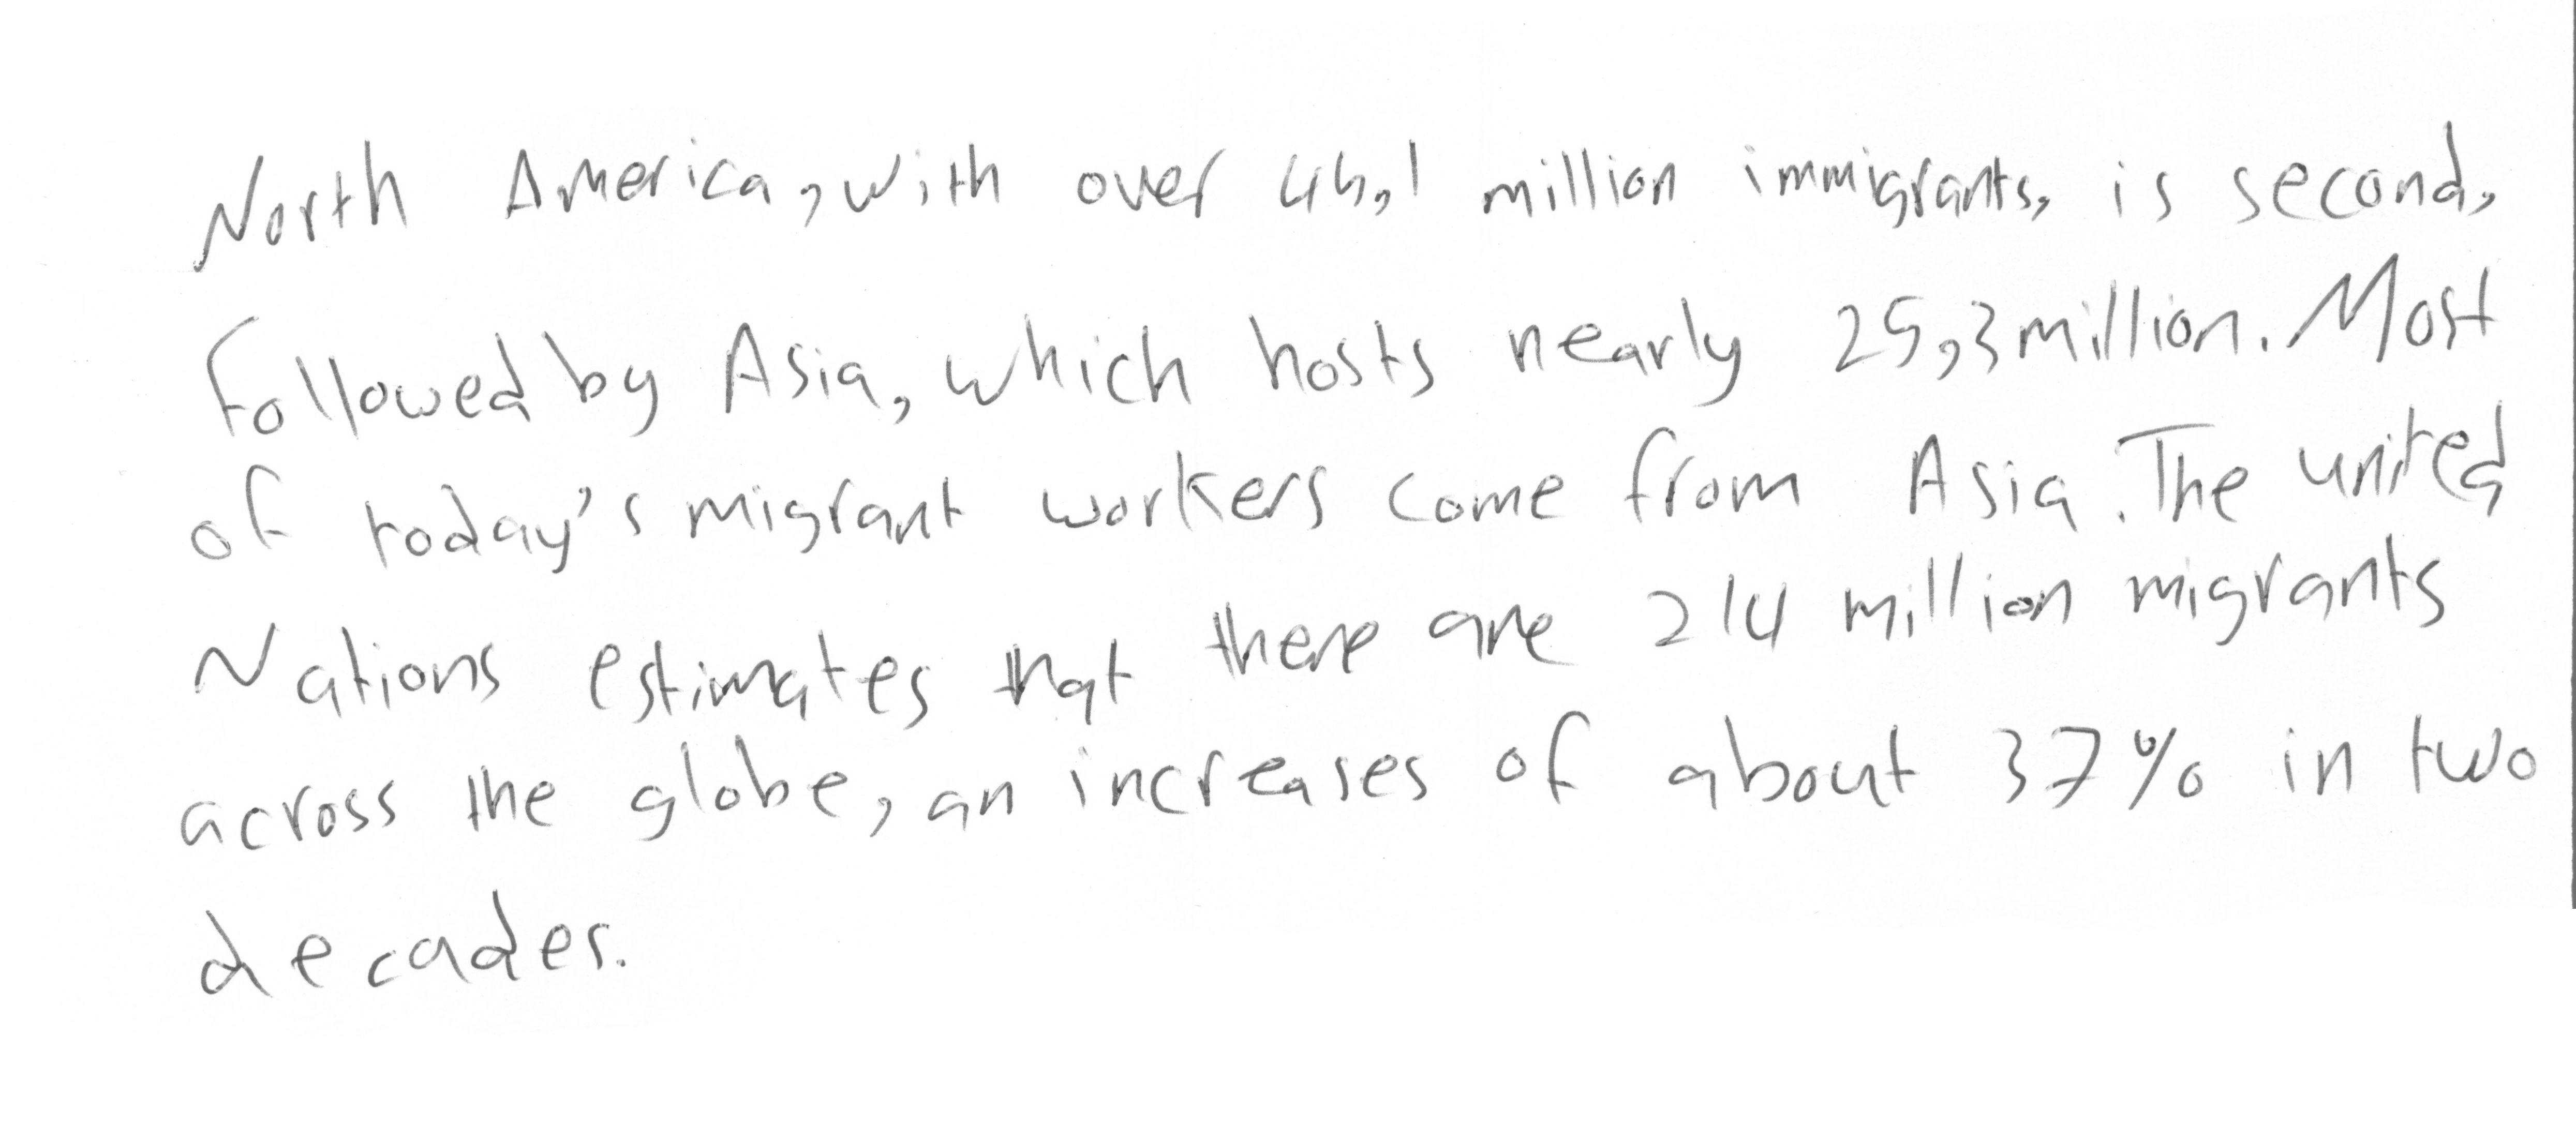 North America, with over 45,1 million immigrants, is second,
Followed by Asia, which hosts nearly 25,3 million. Most
of today's migrant workers come from Asia. The united
Nations estimates that there are 214 million migrants
across the globe, an increases of about 37% in two
decades.